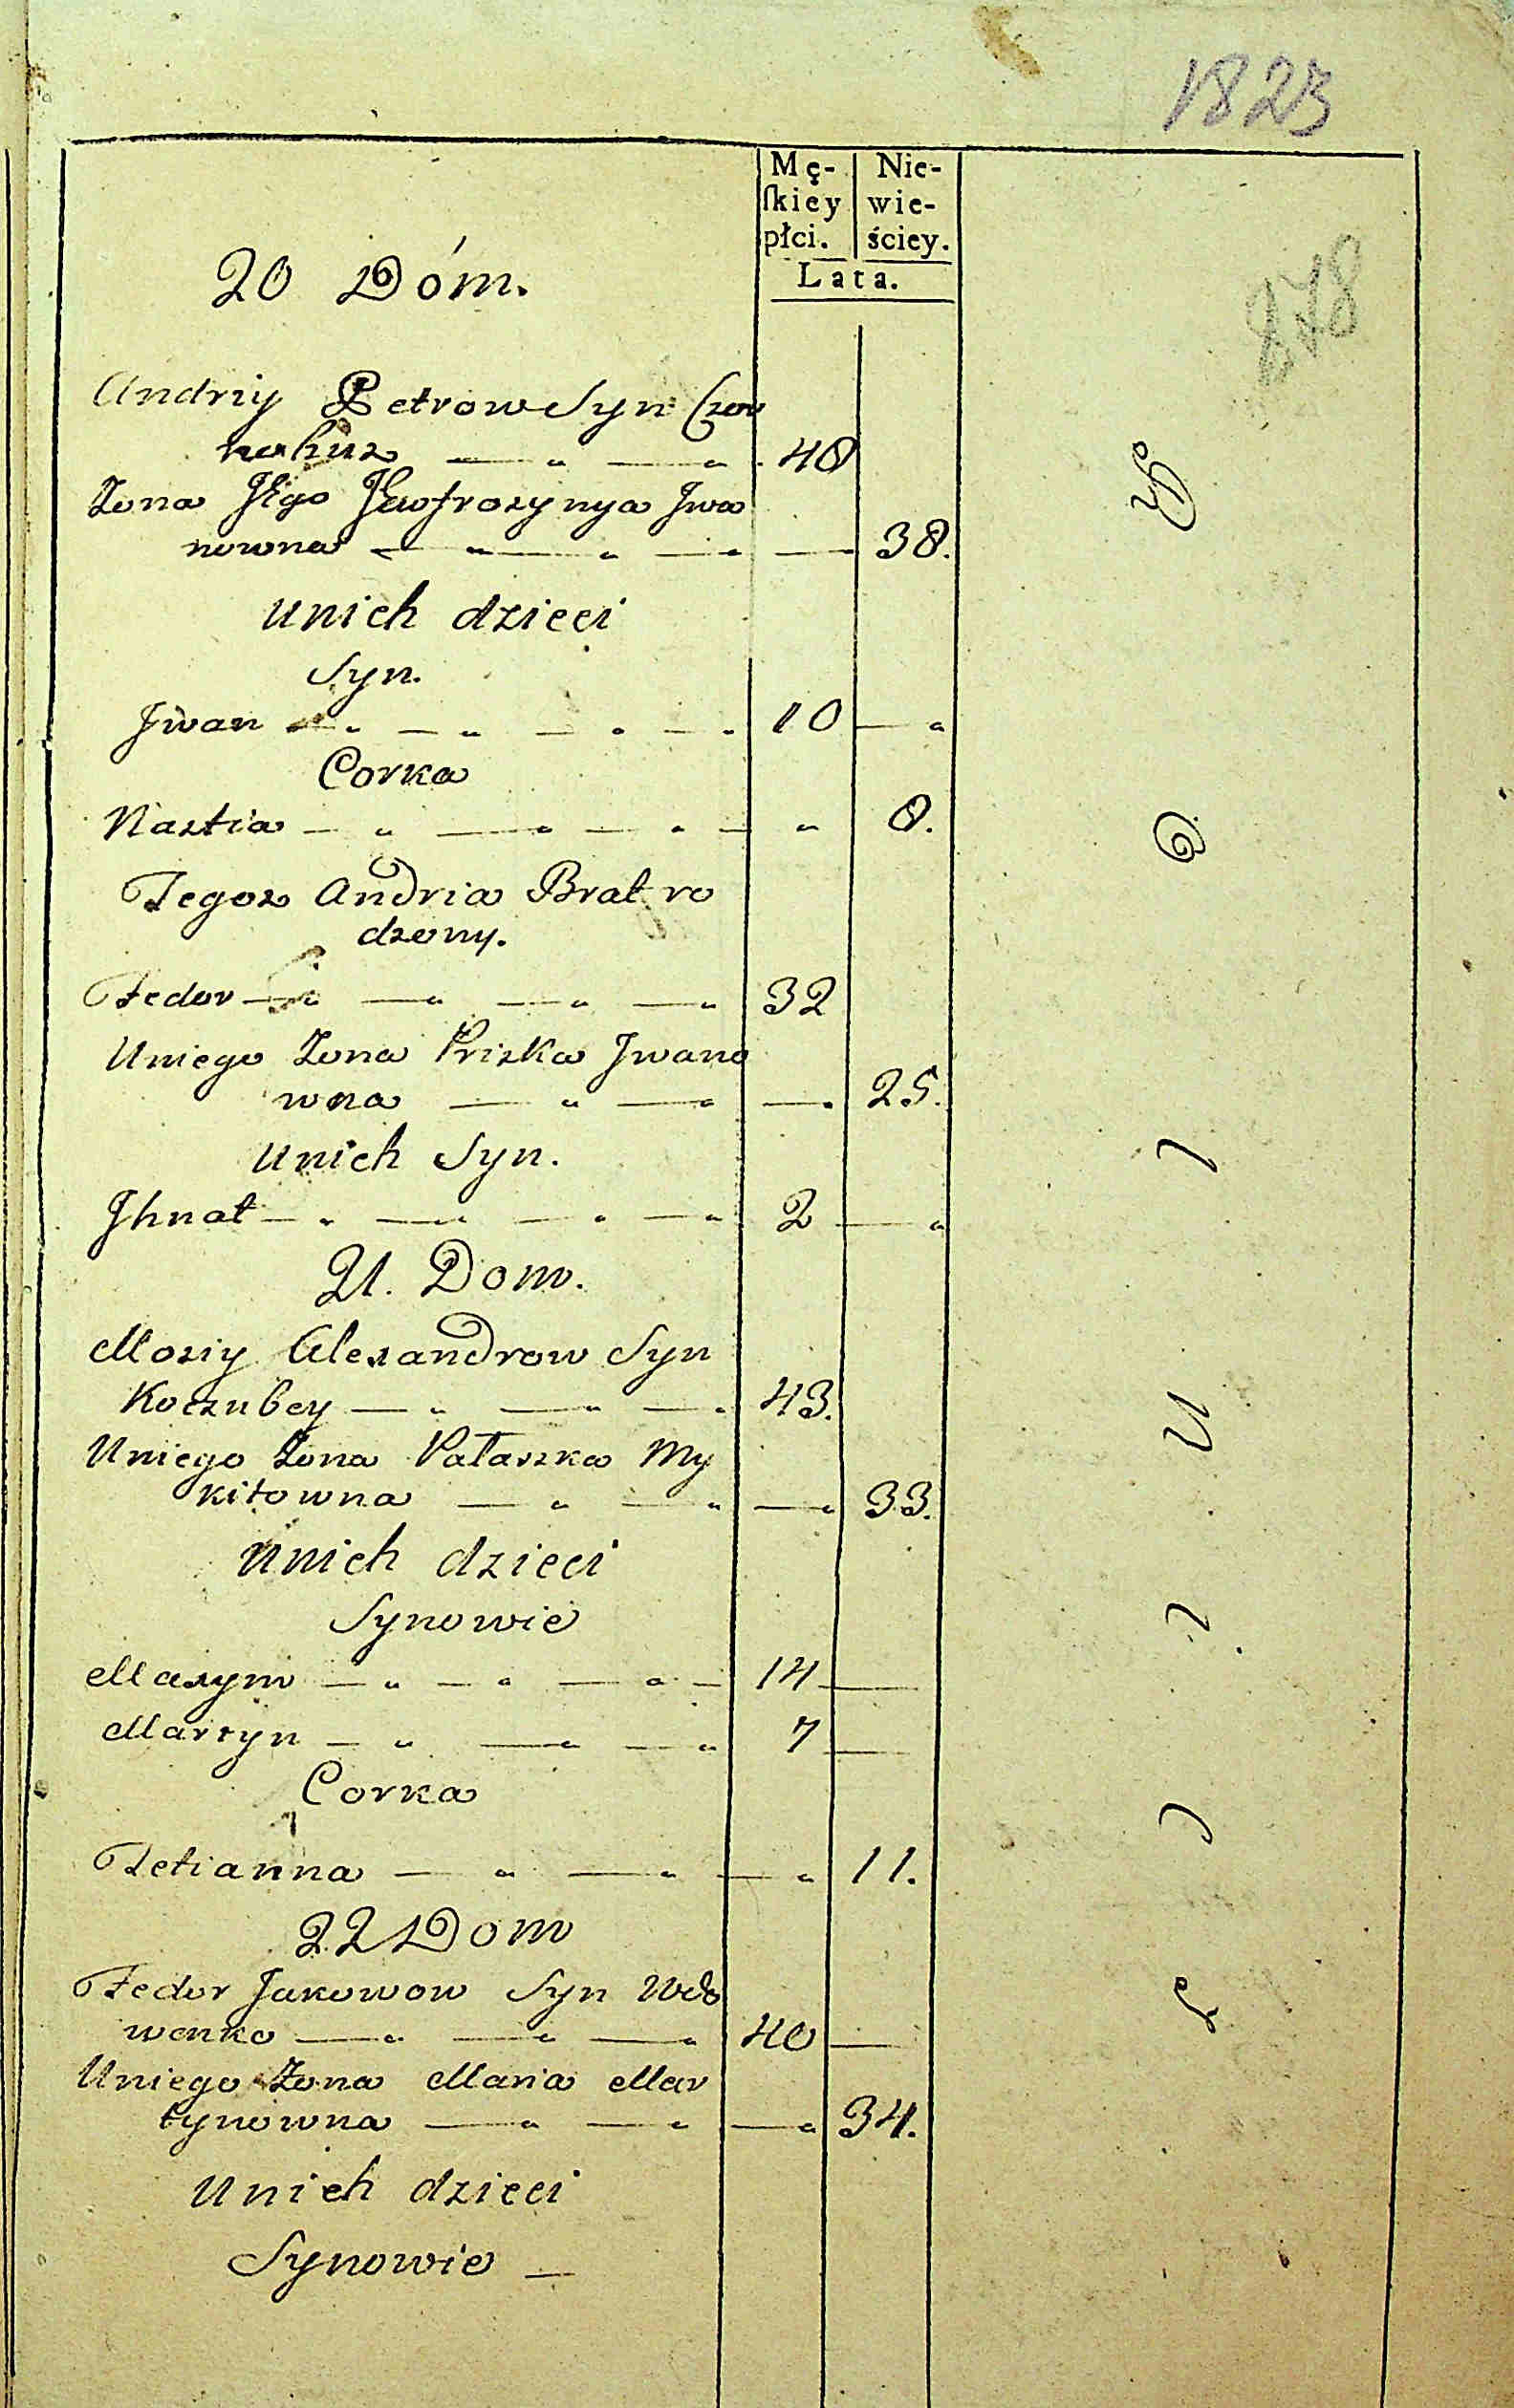 1823
Mę-
ſkiey
płci.
Nie-
wie-
ściey.
Lata.
278
20 Dóm.
Andriy Petrow Syn Czor
nohuz 40
Zona Jego Jewfrozynya Jwa
nowna 38.
unich dzieci
Syn.
Jwan 10
Corka
Nastia 8.
Tegoz Andria Brat ro
dzony.
Fedor 32
Uniego Zona Priska Jwano
wna 25.
unich Syn.
Jhnat 2
21. Dom.
Mosiy Alexandrow Syn
Koczubey 43.
Uniego Zona Pałaszka My
kitowna 33.
unich dzieci
Synowie
Maxym 14
Martyn 7
Corka
Tetianna 11.
22 Dom
Fedor Jakowow Syn Wdo
wenko 40
Uniego Zona Maria Mar
tynowna 34.
unich dzieci
Synowie